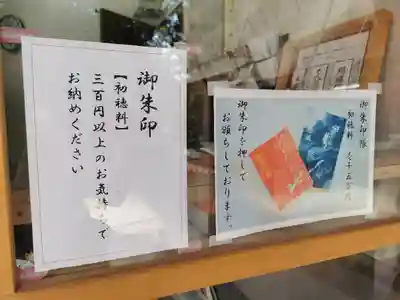 御朱印
【初穂料】
三百円以上のお気持ちで
お納めください
御朱印帳
初穂料
御朱印を押して
お頒ちしております。